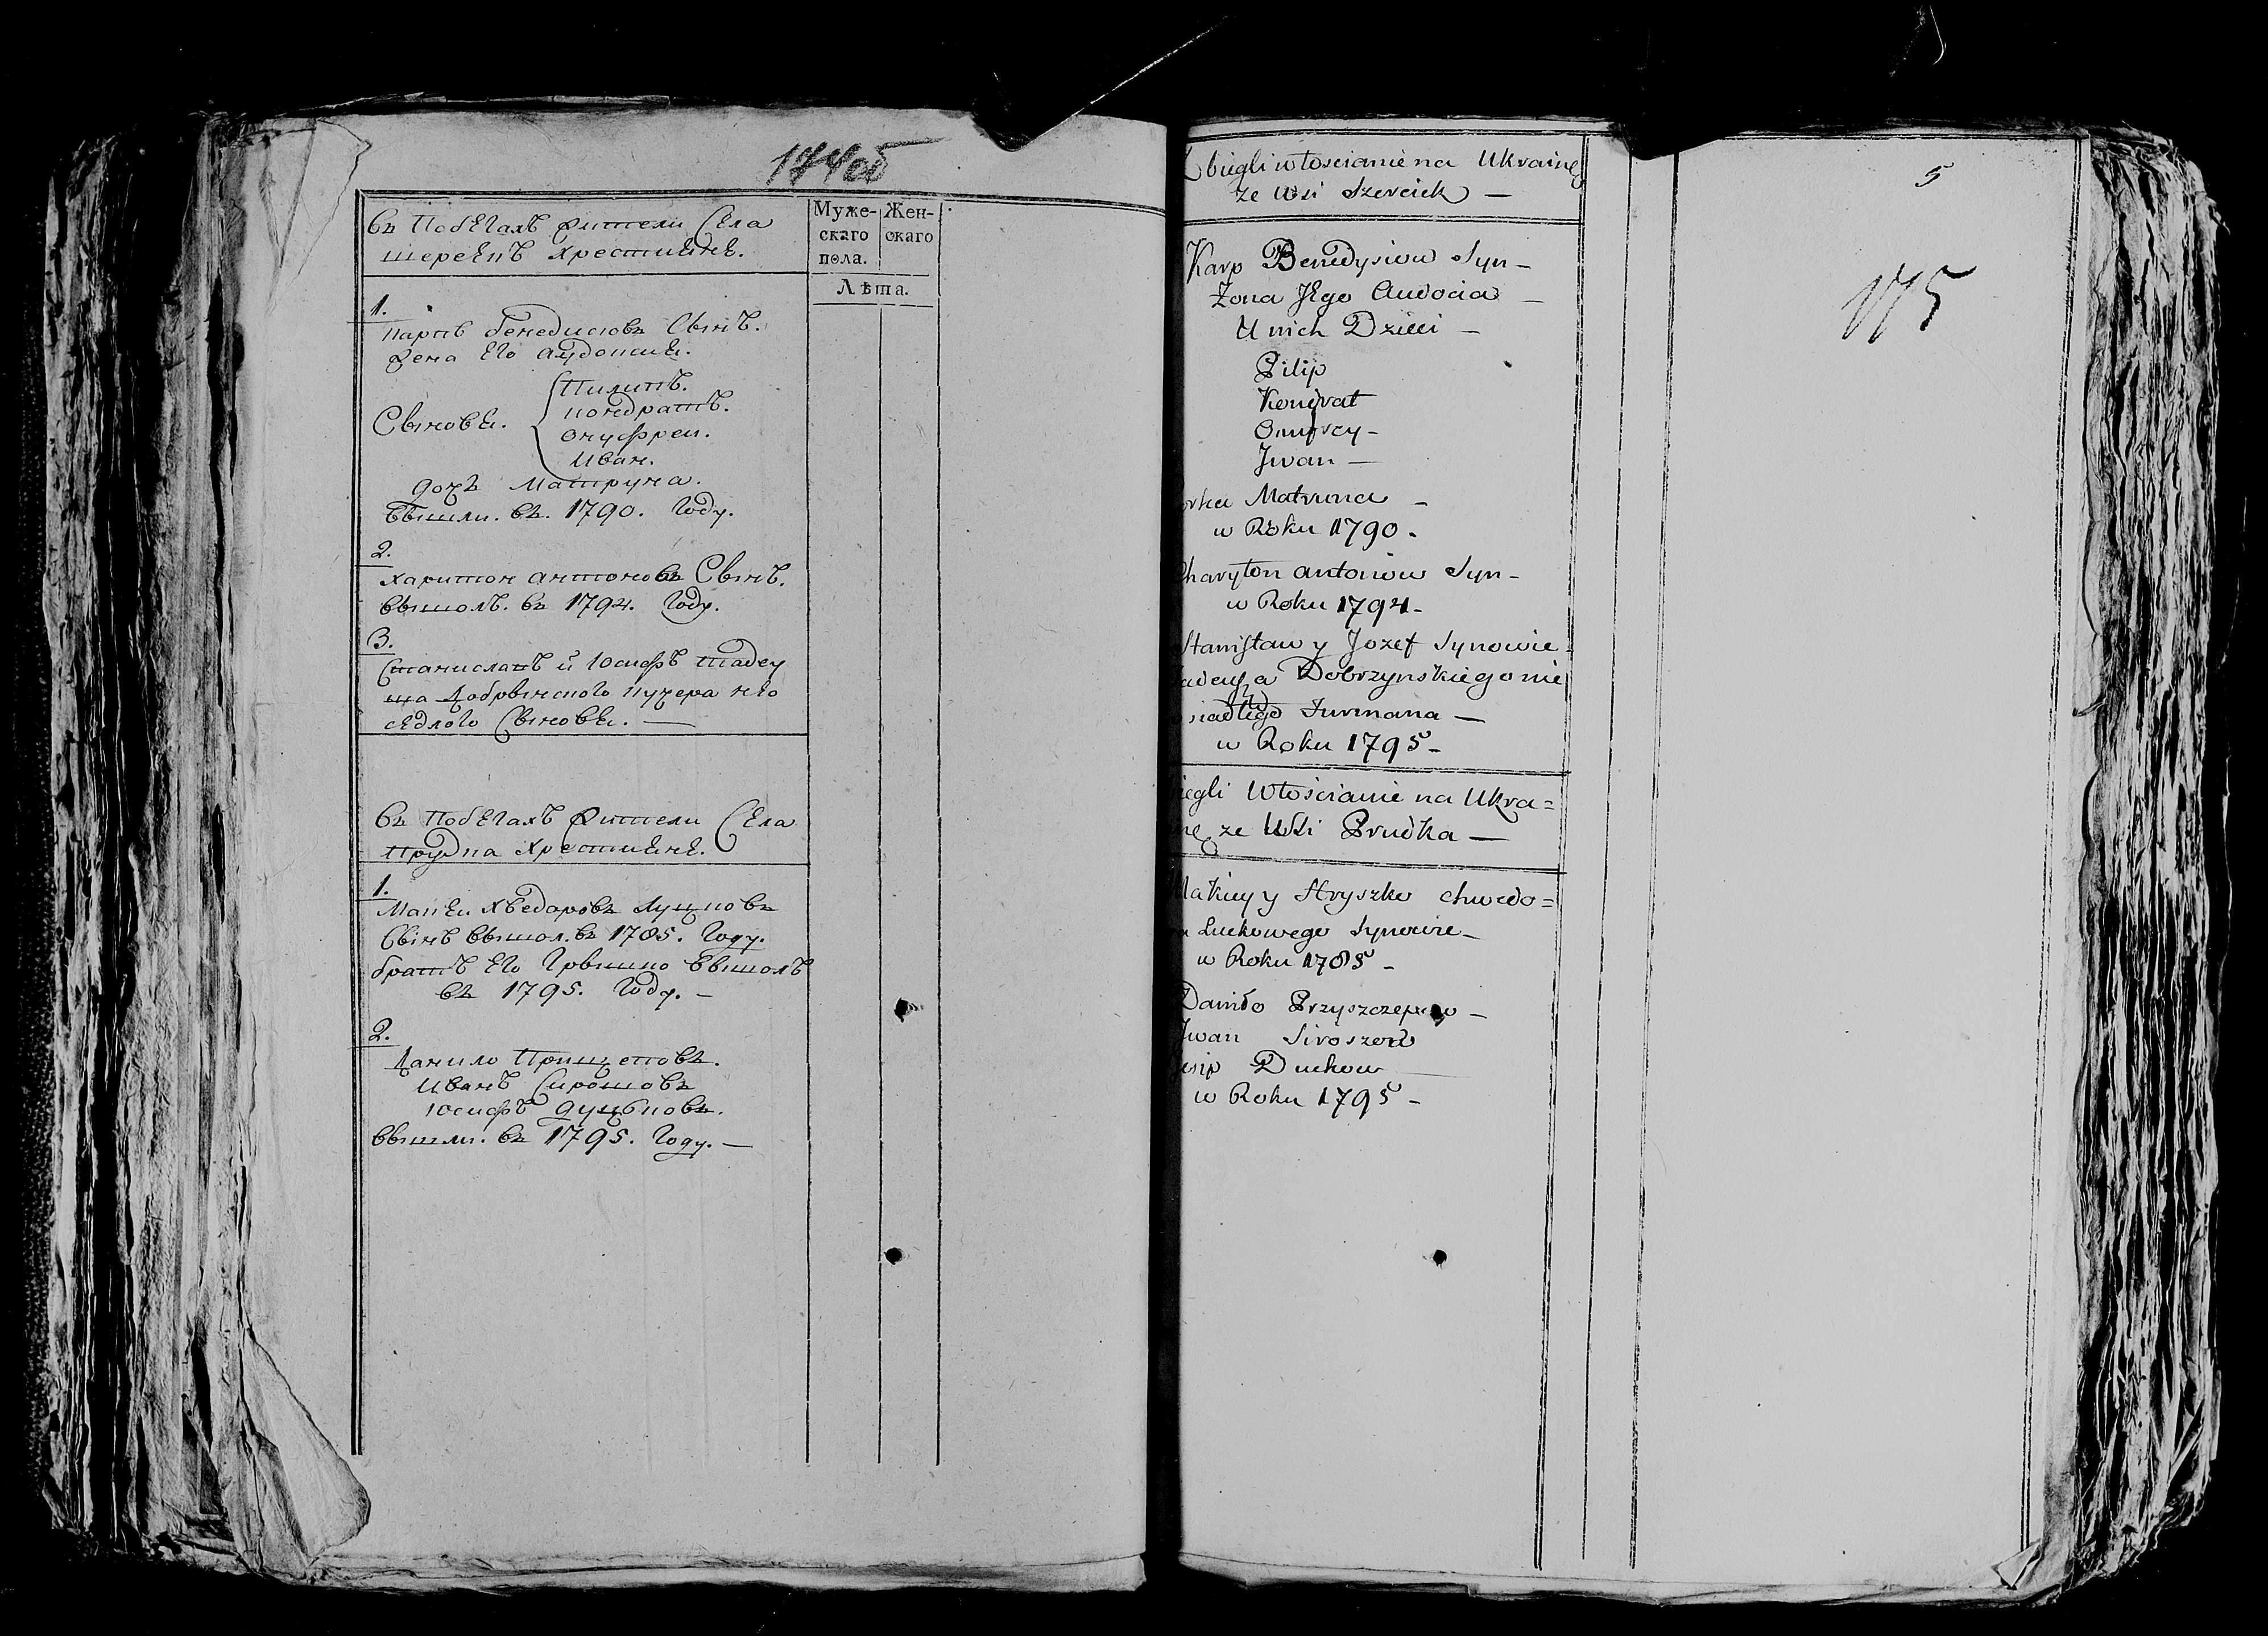 174об
Въ побегахъ жители Села
шереекъ хрестияне.
Муже-
скаго
пола.
Жен-
скаго
Лѣта.
1.
Карпъ бенедисювъ Сынъ.
жена Его аудотия.
Сыновя.
Пилипъ.
кондратъ.
онуфреи.
Иван.
дочь Матруна.
Вышли. въ. 1790. Году.
2.
харитон антоновъ Сынъ.
вышолъ. въ 1794. Году.
3.
Станиславъ й Юсифъ тадеу
ша добрынского кучера нео
седлого Сыновя.
Въ побегахъ жители Села
прудка хрестияне.
1.
Макеи хведаровъ луцковъ
Сынъ вышол. въ 1785. Году.
братъ Его Грышко вышолъ
въ 1795. Году.
2.
данило прищеповъ.
Иванъ Сирошовъ
Юсифъ
вышли. въ 1795. Году.
Zbiegli włoscianie na Ukrainę
ze Wsi Szereiek
Karp Benedysiow Syn
Zona Jego Audocia
U nich Dzieci
Pilip
Kondrat
Onufrey
Jwan
orka Matruna
w Roku 1790.
Charyton antonow Syn
w Roku 1794
Stanisław y Jozef Synowie
adeusza Dobrzynskiego nie
siadłego Furmana
w Roku 1795
iegli Włościanie na Ukra=
nę ze Wsi Prudka
Makiey y Hryszko chwedo=
a Luckowego Synowie
w Roku 1785
Daniło Przyszczepow
Jwan Siroszow
usip Duckow
w Roku 1795
5
175